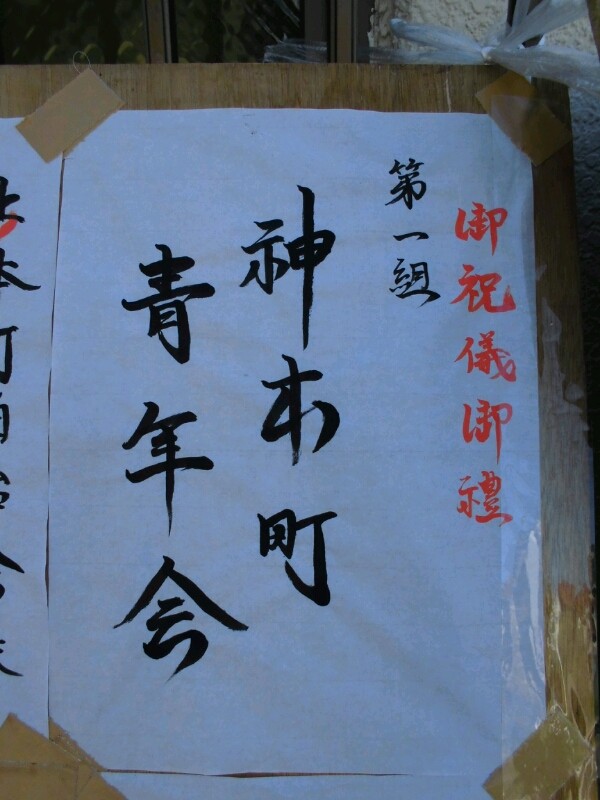 御祝儀御禮
第一組
神本町
青年会